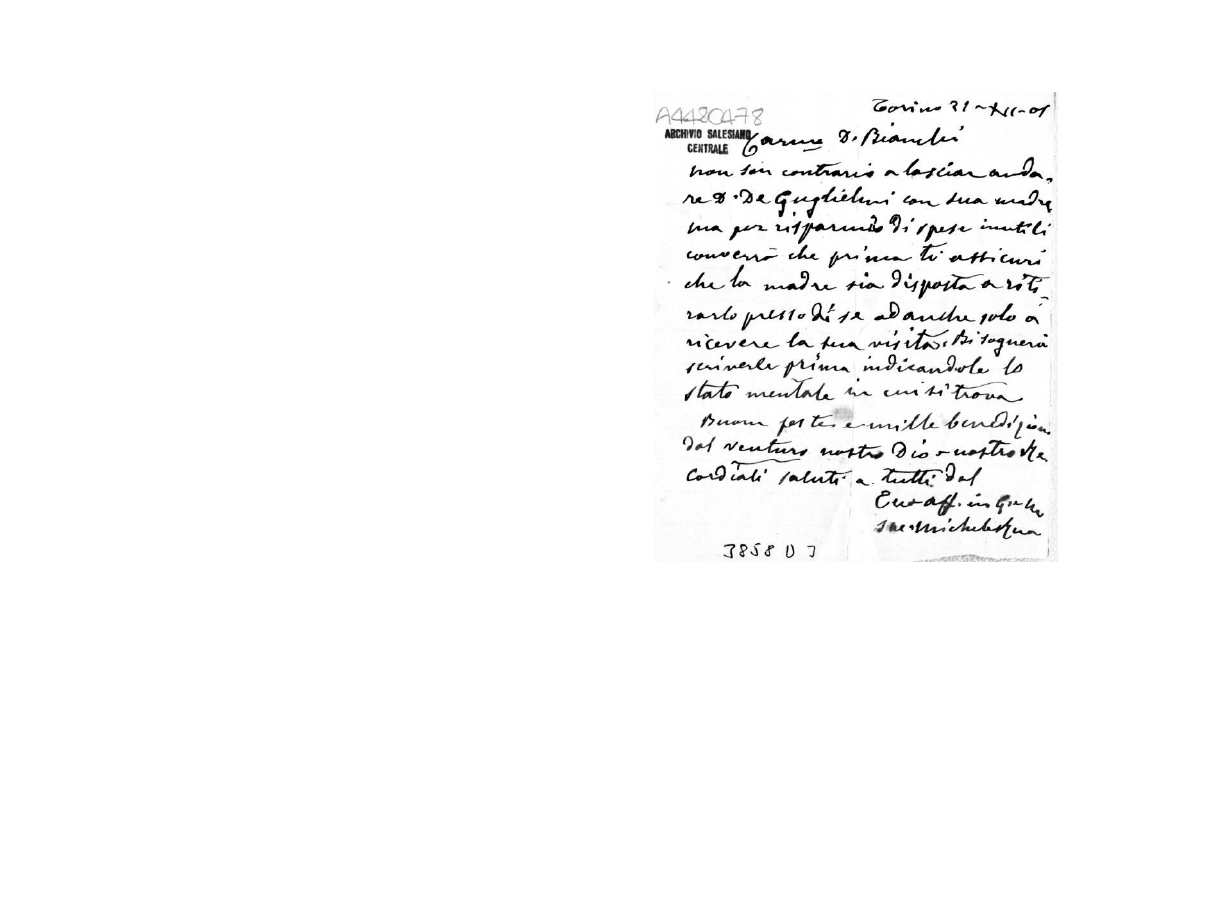 Torino 21-XII-01
A4480478
ARCHIVIO SALESIANO
CENTRALE
Car.mo D. Bianchi
non son contrario a lasciar anda-
re D. De Guglielmi con sua madre
ma per risparmio di spese inutili
converrà che prima ti assicuri
che la madre sia disposta a riti-
rarlo presso di se od anche solo a
ricevere la sua visita. Bisognerà
scriverle prima indicandole lo
stato mentale in cui si trova.
Buone feste e mille benedizioni
dal venturo nostro Dio e nostro Re
Cordiali saluti a tutti dal
Tuo aff. in G. e M.
Sac. Michele Rua
3858 D 3